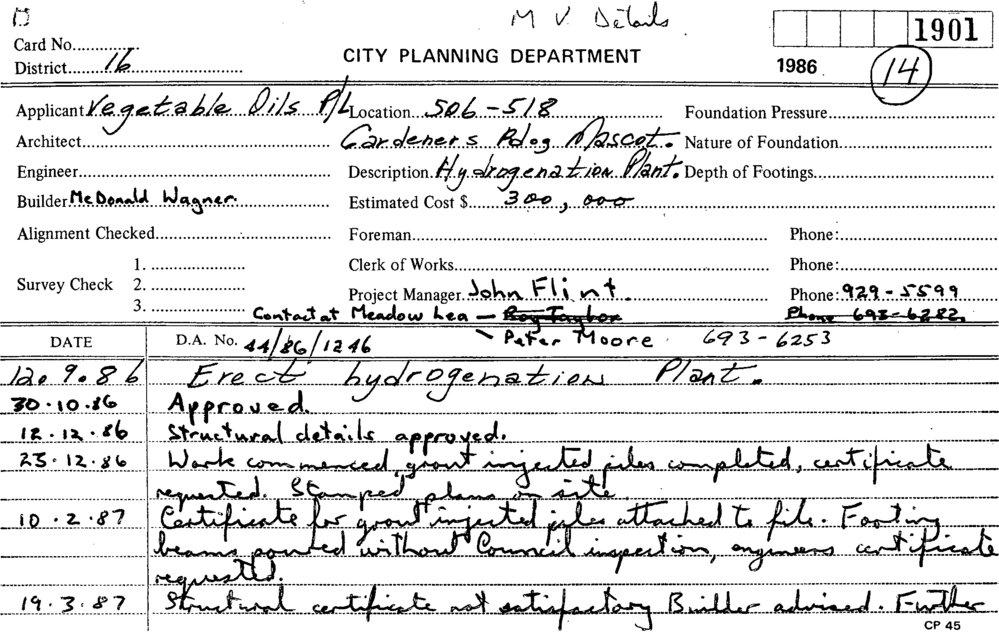 M V Details
1901
Card No.............
District......16..........................
CITY PLANNING DEPARTMENT
1986
14
Applicant Vegetable Oils P/L Location...506-518 Foundation Pressure..................
Architect............................................ Gardeners Rdog Mascot. Nature of Foundation................
Engineer............................................. Description. Hydrogenation Plant. Depth of Footings......................
Builder McDonald Wagner. Estimated Cost $......300,000
Alignment Checked............................... Foreman.................................................................. Phone:.........................
1. .................... Clerk of Works......................................................... Phone:.........................
Survey Check 2. ....................
Project Manager. John Flint. Phone: 929-5599
3. ....................
Contact at Meadow Lea — Roy Taylor Phone 693-6282
DATE D.A. No. 44/86/1246 Peter Moore 693-6253
12.9.86 Erect hydrogenation Plant.
30.10.86 Approved.
12.12.86 Structural details approved.
23.12.86 Work commenced, grout injected piles completed, certificate
requested. Stamped plans on site.
10.2.87 Certificate for grout injected piles attached to file. Footing
beams poured without Council inspection, engineers certificate
requested.
19.3.87 Structural certificate not satisfactory Builder advised. Further
CP 45